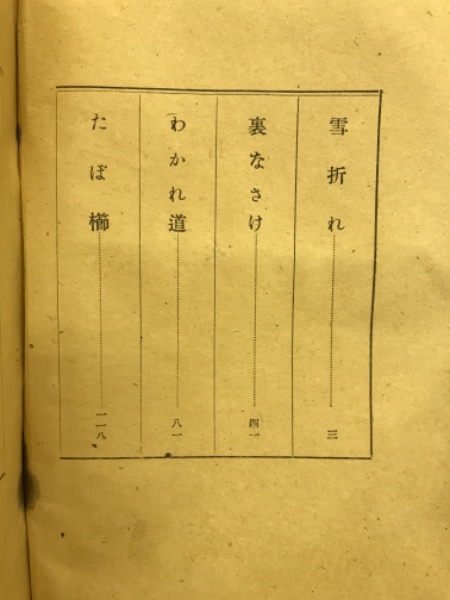 雪折れ……三
裏なさけ……四一
わかれ道……八一
たぼ櫛……一一八